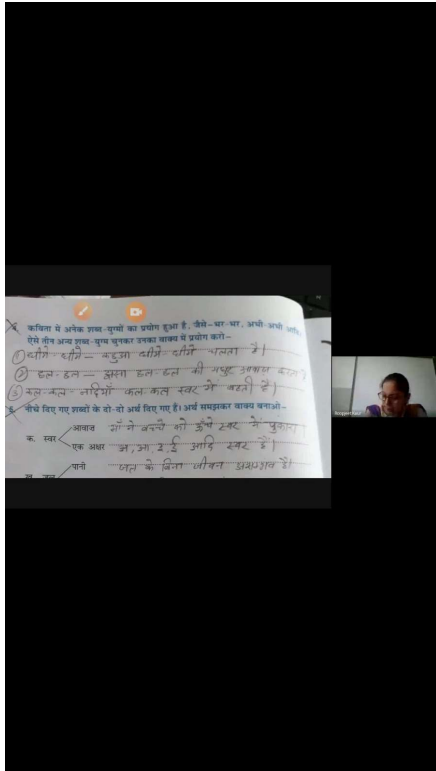 कविता में अनेक शब्द-युग्मों का प्रयोग हुआ है, जैसे-भर-भर, अभी-अभी आदि,
ऐसे तीन अन्य शब्द-युग्म चुनकर उनका वाक्य में प्रयोग करो-
① धीमे-धीमे - कछुआ धीमे-धीमे चलता है।
② छल-छल - झरना छल-छल की मधुर आवाज करता
③ कल-कल - नदियाँ कल-कल स्वर में बहती हैं।
6. नीचे दिए गए शब्दों के दो-दो अर्थ दिए गए हैं। अर्थ समझकर वाक्य बनाओ-
आवाज़ माँ ने बच्चों को ऊँचे स्वर में पुकारा।
क. स्वर
एक अक्षर अ, आ, इ, ई आदि स्वर हैं।
पानी जल के बिना जीवन असम्भव है।